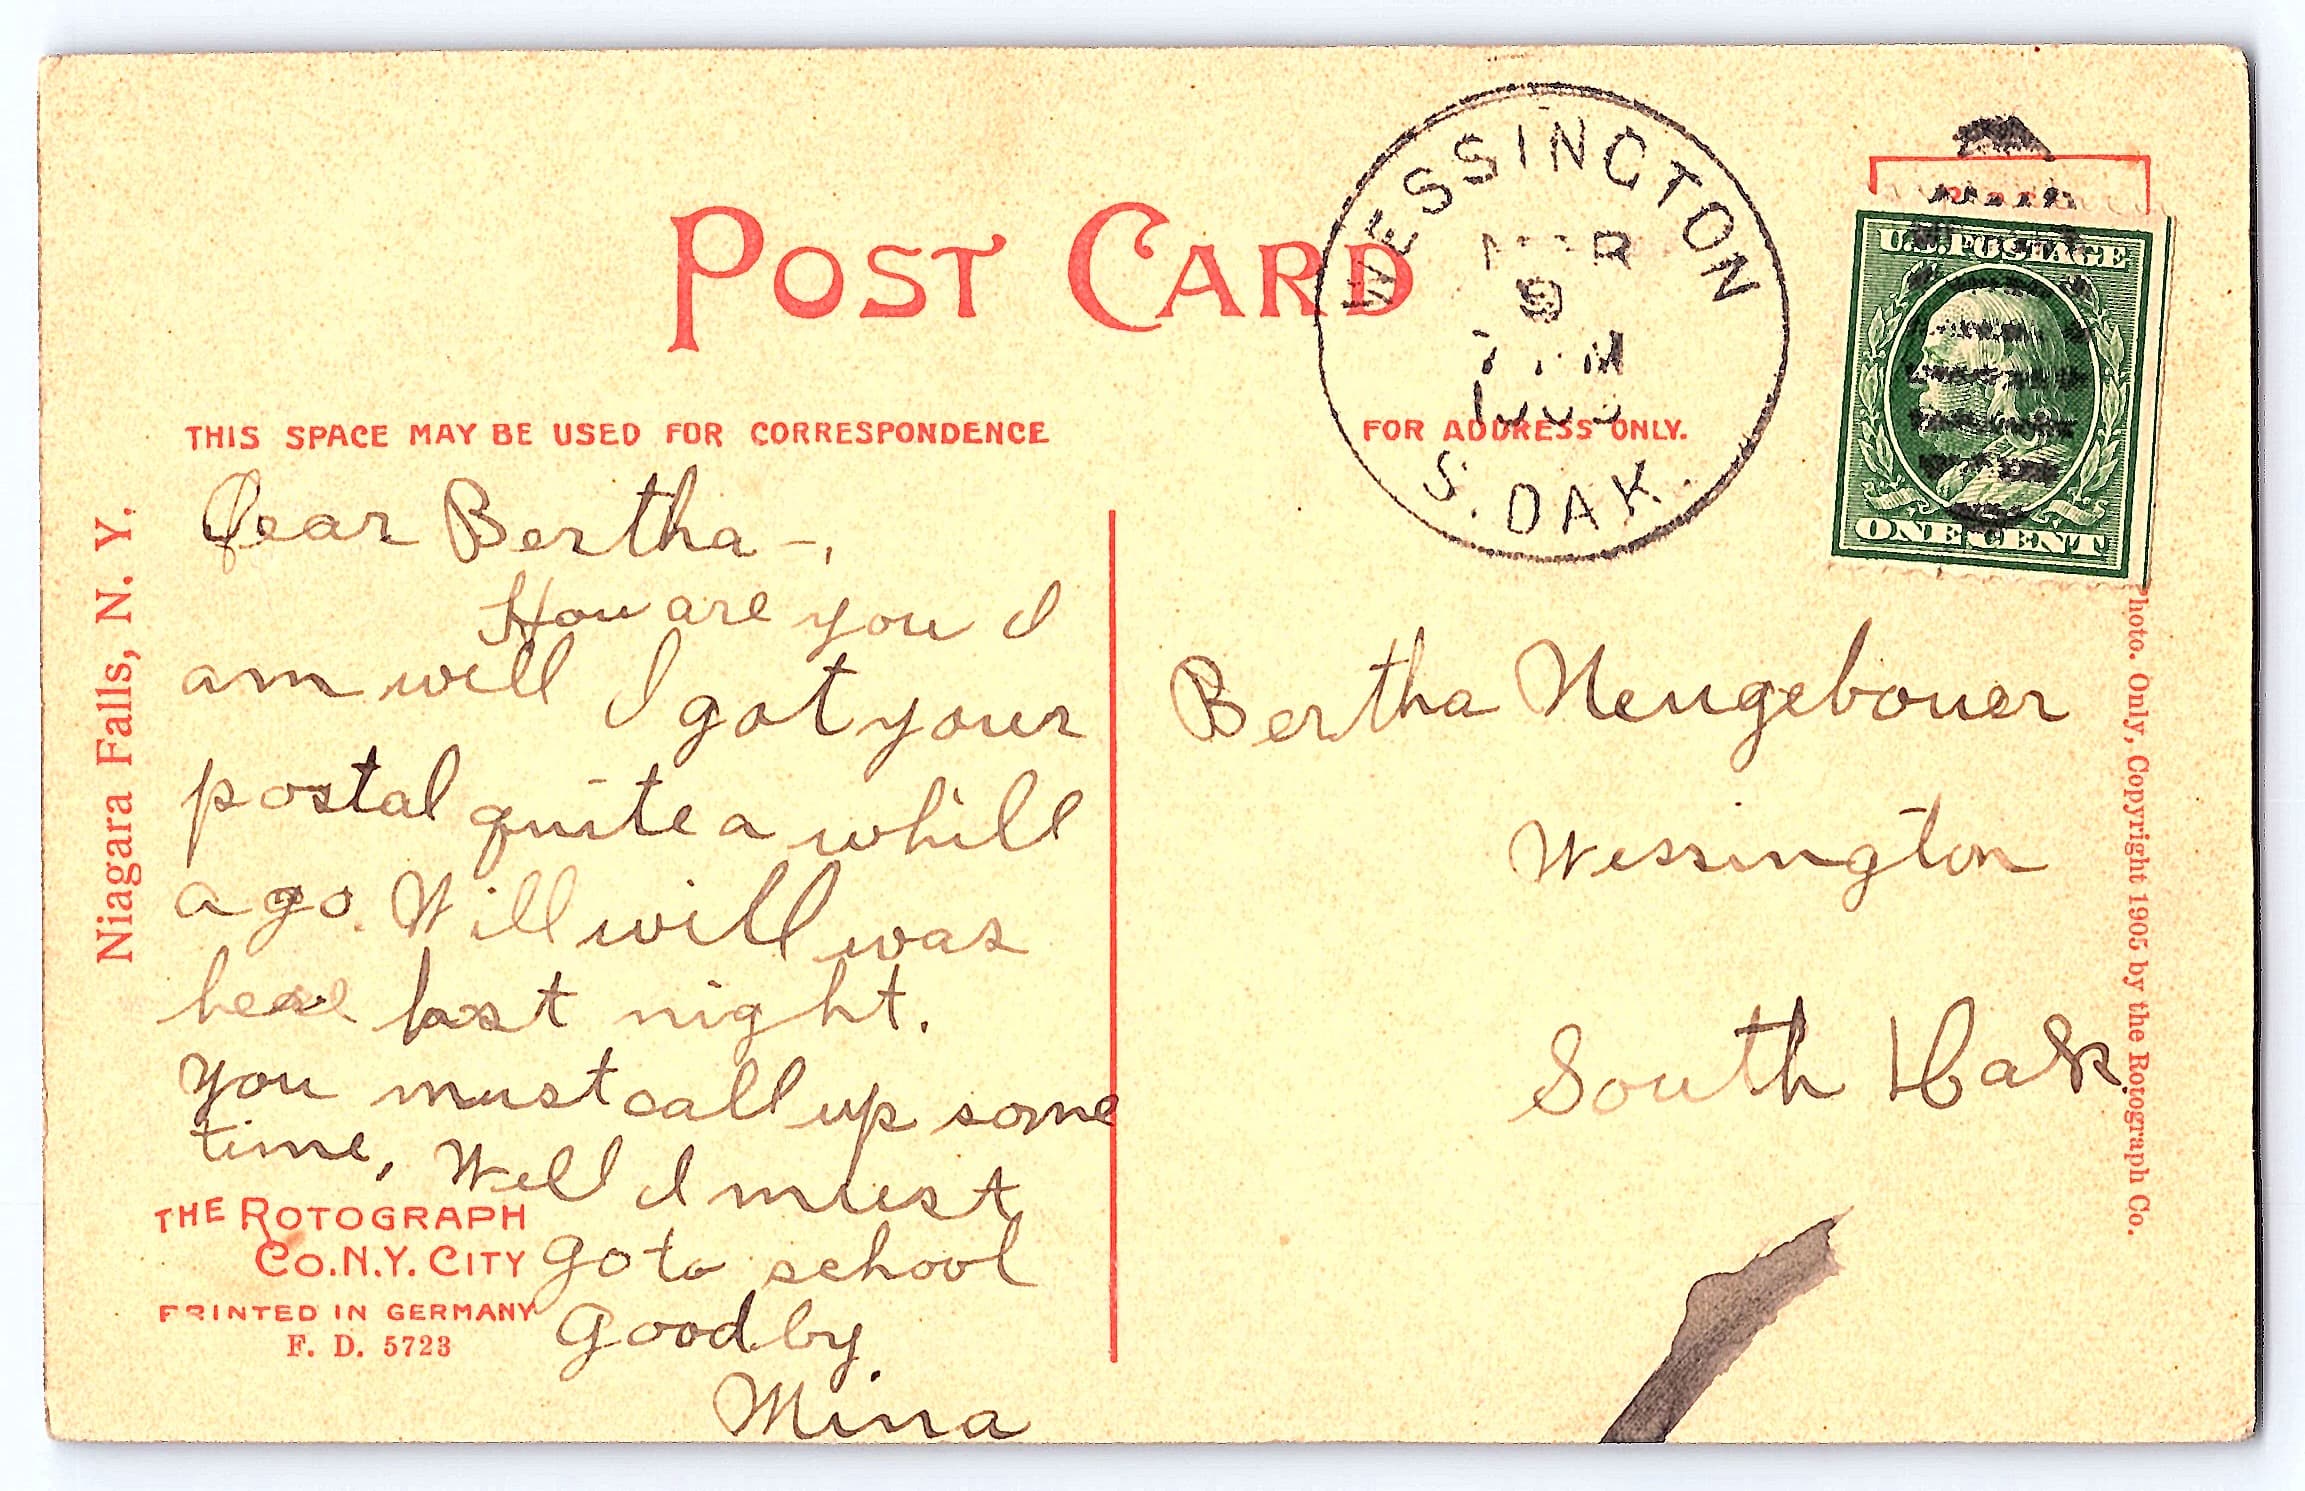 POST CARD
WESSINGTON
MAR
9
S. DAK.
U.S. POSTAGE
ONE CENT
THIS SPACE MAY BE USED FOR CORRESPONDENCE
FOR ADDRESS ONLY.
Niagara Falls, N. Y.
Dear Bertha -,
How are you I
am will I got your
postal quite a whill
ago. Will will was
last night.
You must call up some
time. Well I must
go to school
Good by.
Mina
THE ROTOGRAPH
CO. N.Y. CITY
PRINTED IN GERMANY
F. D. 5723
Bertha Neugebouer
Wessington
South Dak
Photo. Only, Copyright 1905 by the Rotograph Co.